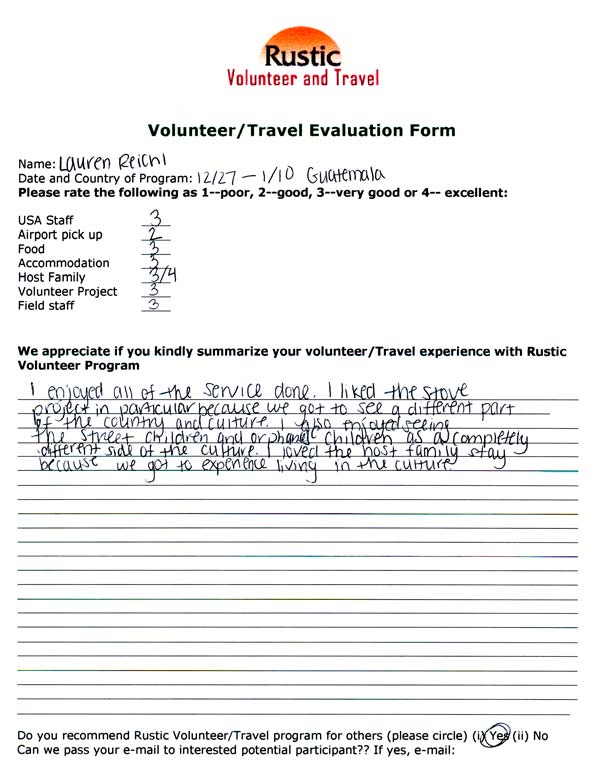 Rustic
Volunteer and Travel
Volunteer/Travel Evaluation Form
Name: Lauren Reichl
Date and Country of Program: 12/27 - 1/10 Guatemala
Please rate the following as 1--poor, 2--good, 3--very good or 4-- excellent:
USA Staff 3
Airport pick up 2
Food 3
Accommodation 3
Host Family 3/4
Volunteer Project 3
Field staff 3
We appreciate if you kindly summarize your volunteer/Travel experience with Rustic
Volunteer Program
I enjoyed all of the service done. I liked the stove
project in particular because we got to see a different part
of the country and culture. I also enjoyed seeing
the street children and orphaned children as a completely
different side of the culture. I loved the host family stay
because we got to experience living in the culture.
Do you recommend Rustic Volunteer/Travel program for others (please circle) (i) Yes (ii) No
Can we pass your e-mail to interested potential participant?? If yes, e-mail: